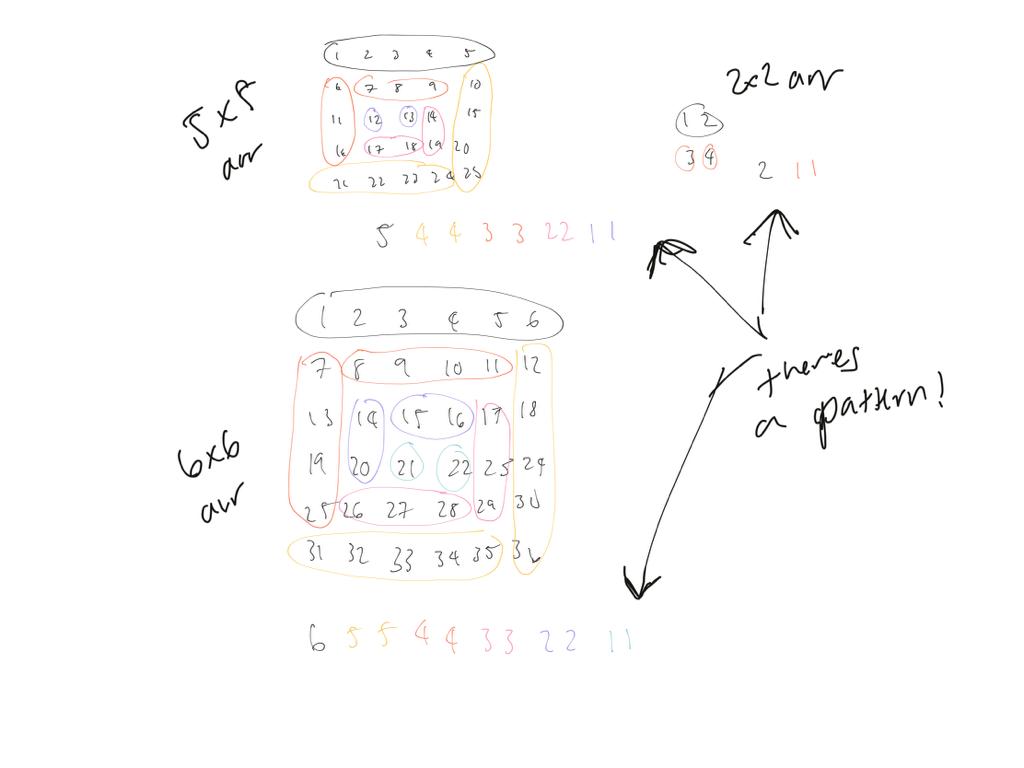 5x5
arr
1 2 3 4 5
6 7 8 9 10
11 12 13 14 15
16 17 18 19 20
21 22 23 24 25
5 4 4 3 3 22 11
2x2 arr
1 2
3 4
2 11
6x6
arr
1 2 3 4 5 6
7 8 9 10 11 12
13 14 15 16 17 18
19 20 21 22 23 24
25 26 27 28 29 30
31 32 33 34 35 36
6 5 5 4 4 33 22 11
theres
a pattern!